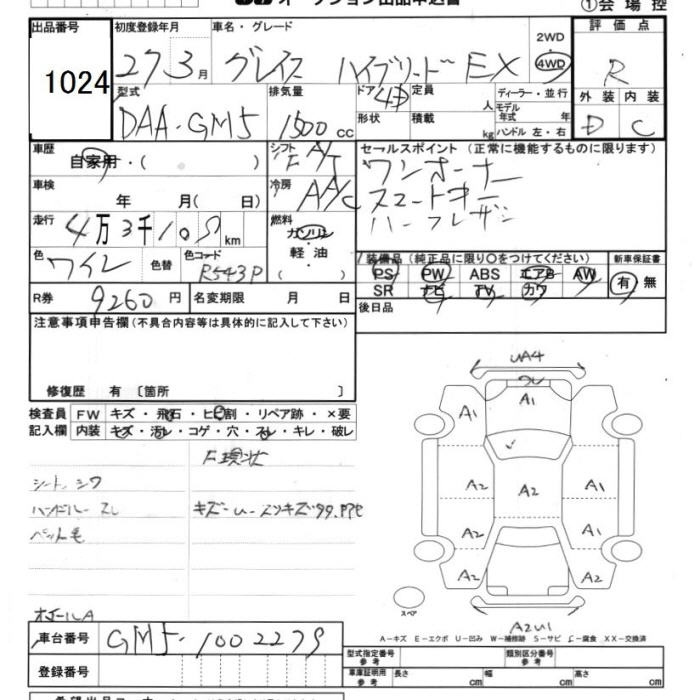 オークション出品申込書
①会場控
出品番号 初度登録年月 車名・グレード 2WD 評価点
1024 27 3月 グレイス ハイブリード EX 4WD R
型式 排気量 ドア 4D 定員 人 ディーラー・並行 外装 内装
DAA-GM5 1500cc 形状 積載 kg モデル年式 年 ハンドル 左・右 D C
車歴 自家用・( ) シフト F A/T セールスポイント (正常に機能するものに限ります)
車検 年 月( ) 冷房 AA/C ワンオーナー
スマートキー
ハーフレザー
走行 4万3千109km 燃料 ガソリン 軽油 ( )
色 ワイン 色替 色コード R543P
装備品(純正品に限り〇をつけてください) 新車保証書
PS PW ABS エアB AW 有・無
SR ナビ TV カワ
R券 9260円 名変期限 月 日 後日品
注意事項申告欄(不具合内容等は具体的に記入して下さい)
修復歴 有 〔箇所 〕
検査員 FW キズ・飛石・ヒビ割・リペア跡・×要
記入欄 内装 キズ・汚レ・コゲ・穴・スレ・キレ・破レ
F現状
シート シワ
ハンドル スレ
ペット毛
UA4
A1
A1
A2 A2 A1
A2 A1
A2 A2
スペア
A2U1
A-キズ E-エクボ U-凹み W-補修跡 S-サビ C-腐食 XX-交換済
車台番号 GM5-1002279
登録番号
型式指定番号 参考 類別区分番号 参考
車庫証明用 参考 長さ cm 幅 cm 高さ cm